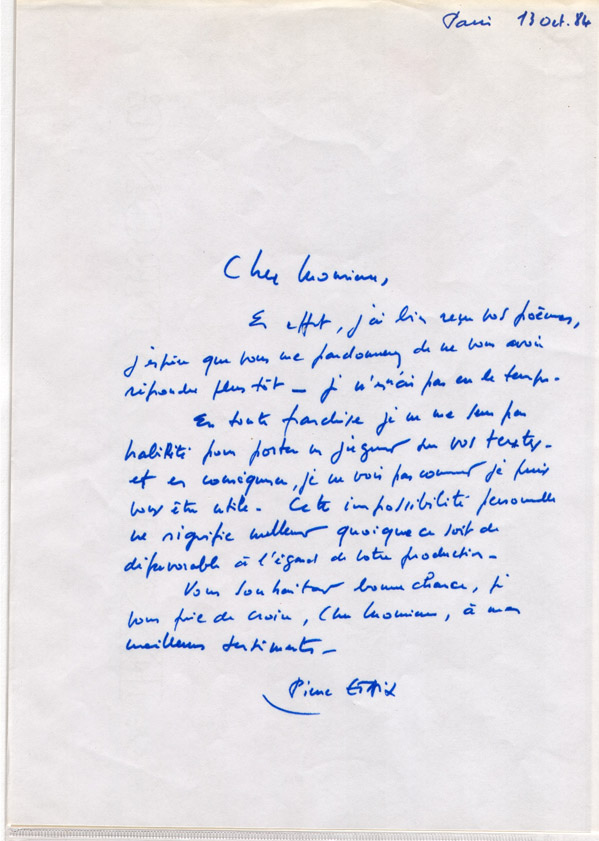 Paris 13 Oct. 84
Cher Monsieur,
En effet, j'ai bien reçu vos poèmes,
j'espère que vous me pardonnerez de ne vous avoir
répondu plus tôt — je n'en ai pas eu le temps.
En toute franchise je ne me sens pas
habilité pour porter un jugement sur vos textes -
et en conséquence, je ne vois pas comment je puis
vous être utile - Cette impossibilité personnelle
ne signifie nullement quoique ce soit de
défavorable à l'égard de votre production -
Vous souhaitant bonne chance, je
vous prie de croire, Cher Monsieur, à mes
meilleurs sentiments -
Pierre Etaix